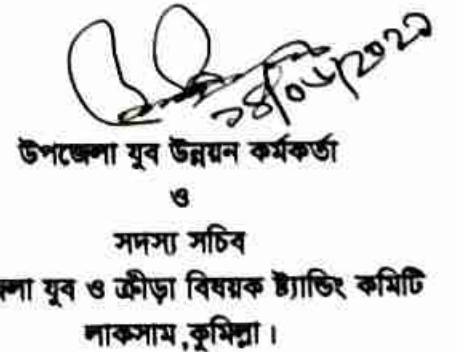 উপজেলা যুব উন্নয়ন কর্মকর্তা
ও
সদস্য সচিব
যুব ও ক্রীড়া বিষয়ক ষ্ট্যান্ডিং কমিটি
লাকসাম,কুমিল্লা।